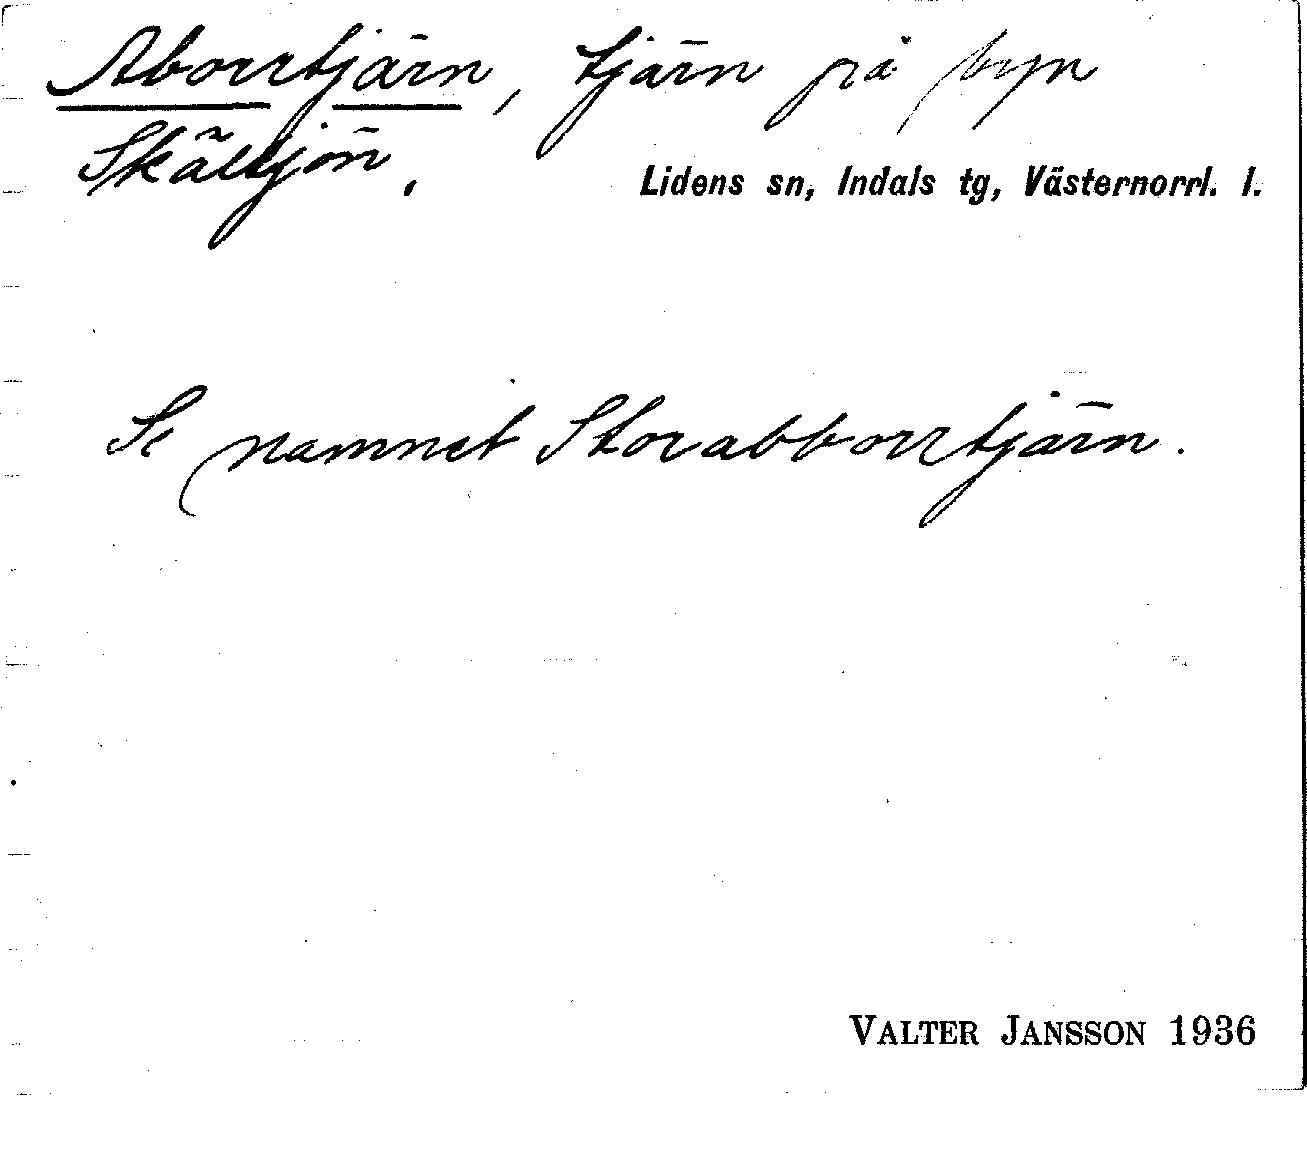 Aborrtjärn, tjärn på byn
Skälsjön.
Lidens sn, Indals tg, Västernorrl. l.
Se namnet Storabborrtjärn.
VALTER JANSSON 1936